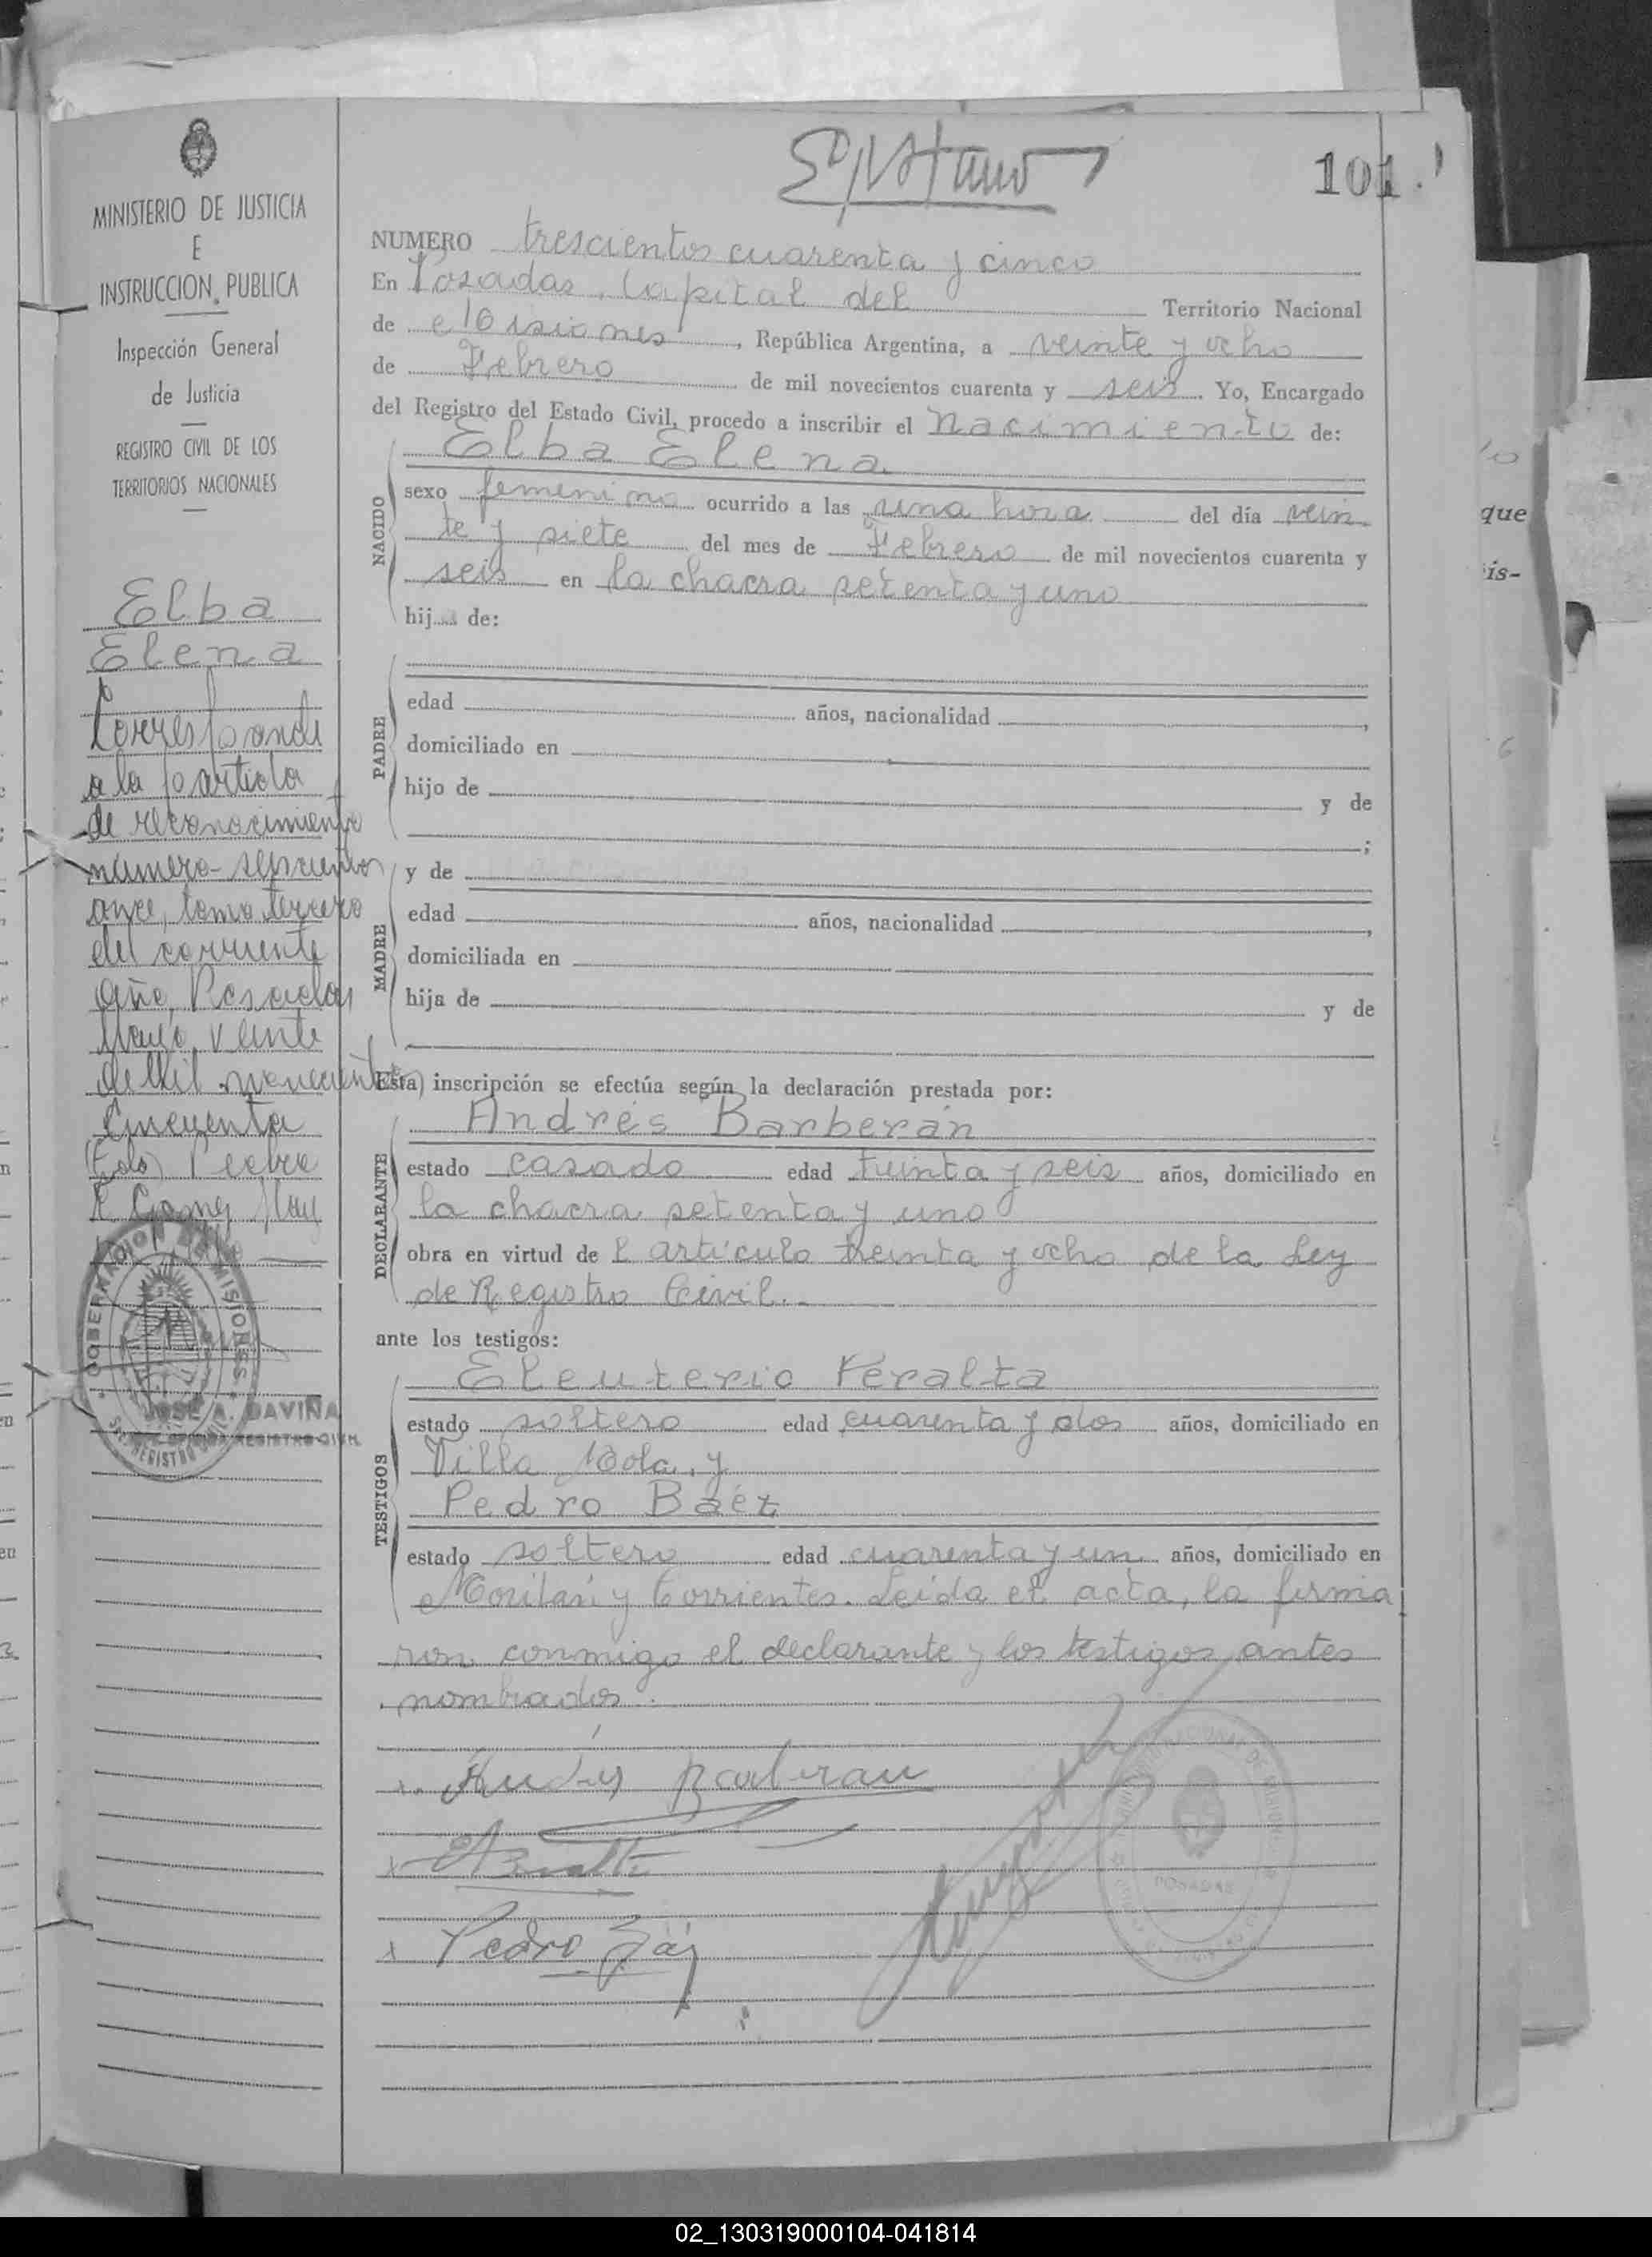 101
MINISTERIO DE JUSTICIA
E
INSTRUCCION PUBLICA
Inspección General
de Justicia
REGISTRO CIVIL DE LOS
TERRITORIOS NACIONALES
Elba
Elena
Corresponde
a la partida
de reconocimiento
número seiscientos
once, tomo tercero
del corriente
año, Posadas
Mayo veinte
de Mil novecientos
cincuenta
GOBERNACION DE MISIONES
JOSE A. DAVIÑA
REGISTRO CIVIL
NUMERO trescientos cuarenta y cinco
En Posadas, Capital del Territorio Nacional
de Misiones, República Argentina, a veinte y ocho
de Febrero de mil novecientos cuarenta y seis. Yo, Encargado
del Registro del Estado Civil, procedo a inscribir el nacimiento de:
NACIDO
Elba Elena
sexo femenino ocurrido a las una hora del día vein
te y siete del mes de Febrero de mil novecientos cuarenta y
seis en la chacra setenta y uno
hij de:
PADRE
edad años, nacionalidad ,
domiciliado en
hijo de y de
;
MADRE
y de
edad años, nacionalidad ,
domiciliada en
hija de y de
Esta inscripción se efectúa según la declaración prestada por:
DECLARANTE
Andrés Barberán
estado casado edad treinta y seis años, domiciliado en
la chacra setenta y uno
obra en virtud de l artículo treinta y ocho de la Ley
de Registro Civil.
ante los testigos:
TESTIGOS
Eleuterio Peralta
estado soltero edad cuarenta y dos años, domiciliado en
Villa Mola, y
Pedro Báez
estado soltero edad cuarenta y un años, domiciliado en
y Corrientes. Leída el acta, la firma
ron conmigo el declarante y los testigos antes
nombrados.
Andrés Barberan
Pedro Báez
POSADAS
que
is-
02_130319000104-041814